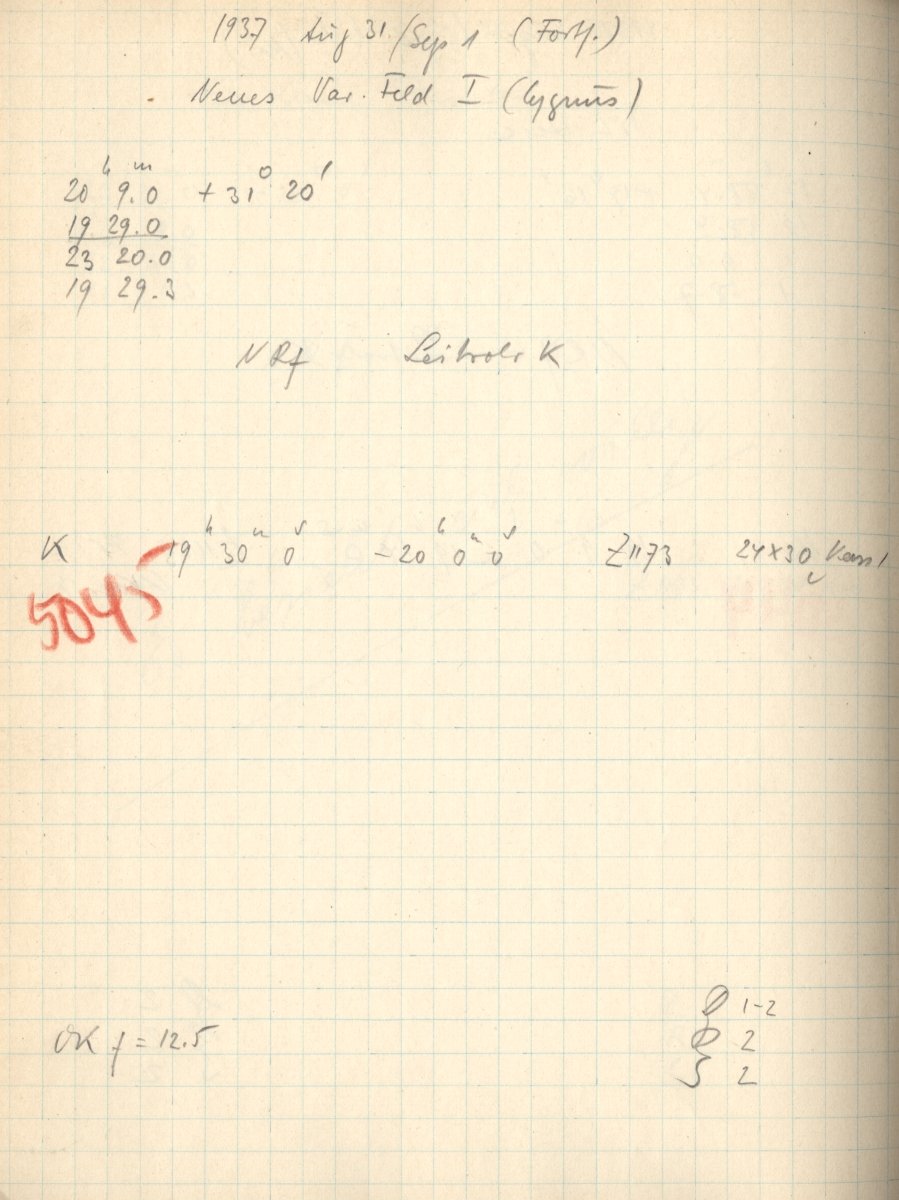 1937 Aug 31./Sep 1 (Fortf.)
Neues Var. Feld I (Cygnus)
20ʰ 9.ᵐ0 + 31° 20'
19 29.0
23 20.0
19 29.3
N Rf Leitrohr K
K 19ʰ 30ᵐ 0ˢ - 20ʰ 0ᵐ 0ˢ Z1173 24x30
5045
OK f = 12.5
1-2
2
S 2